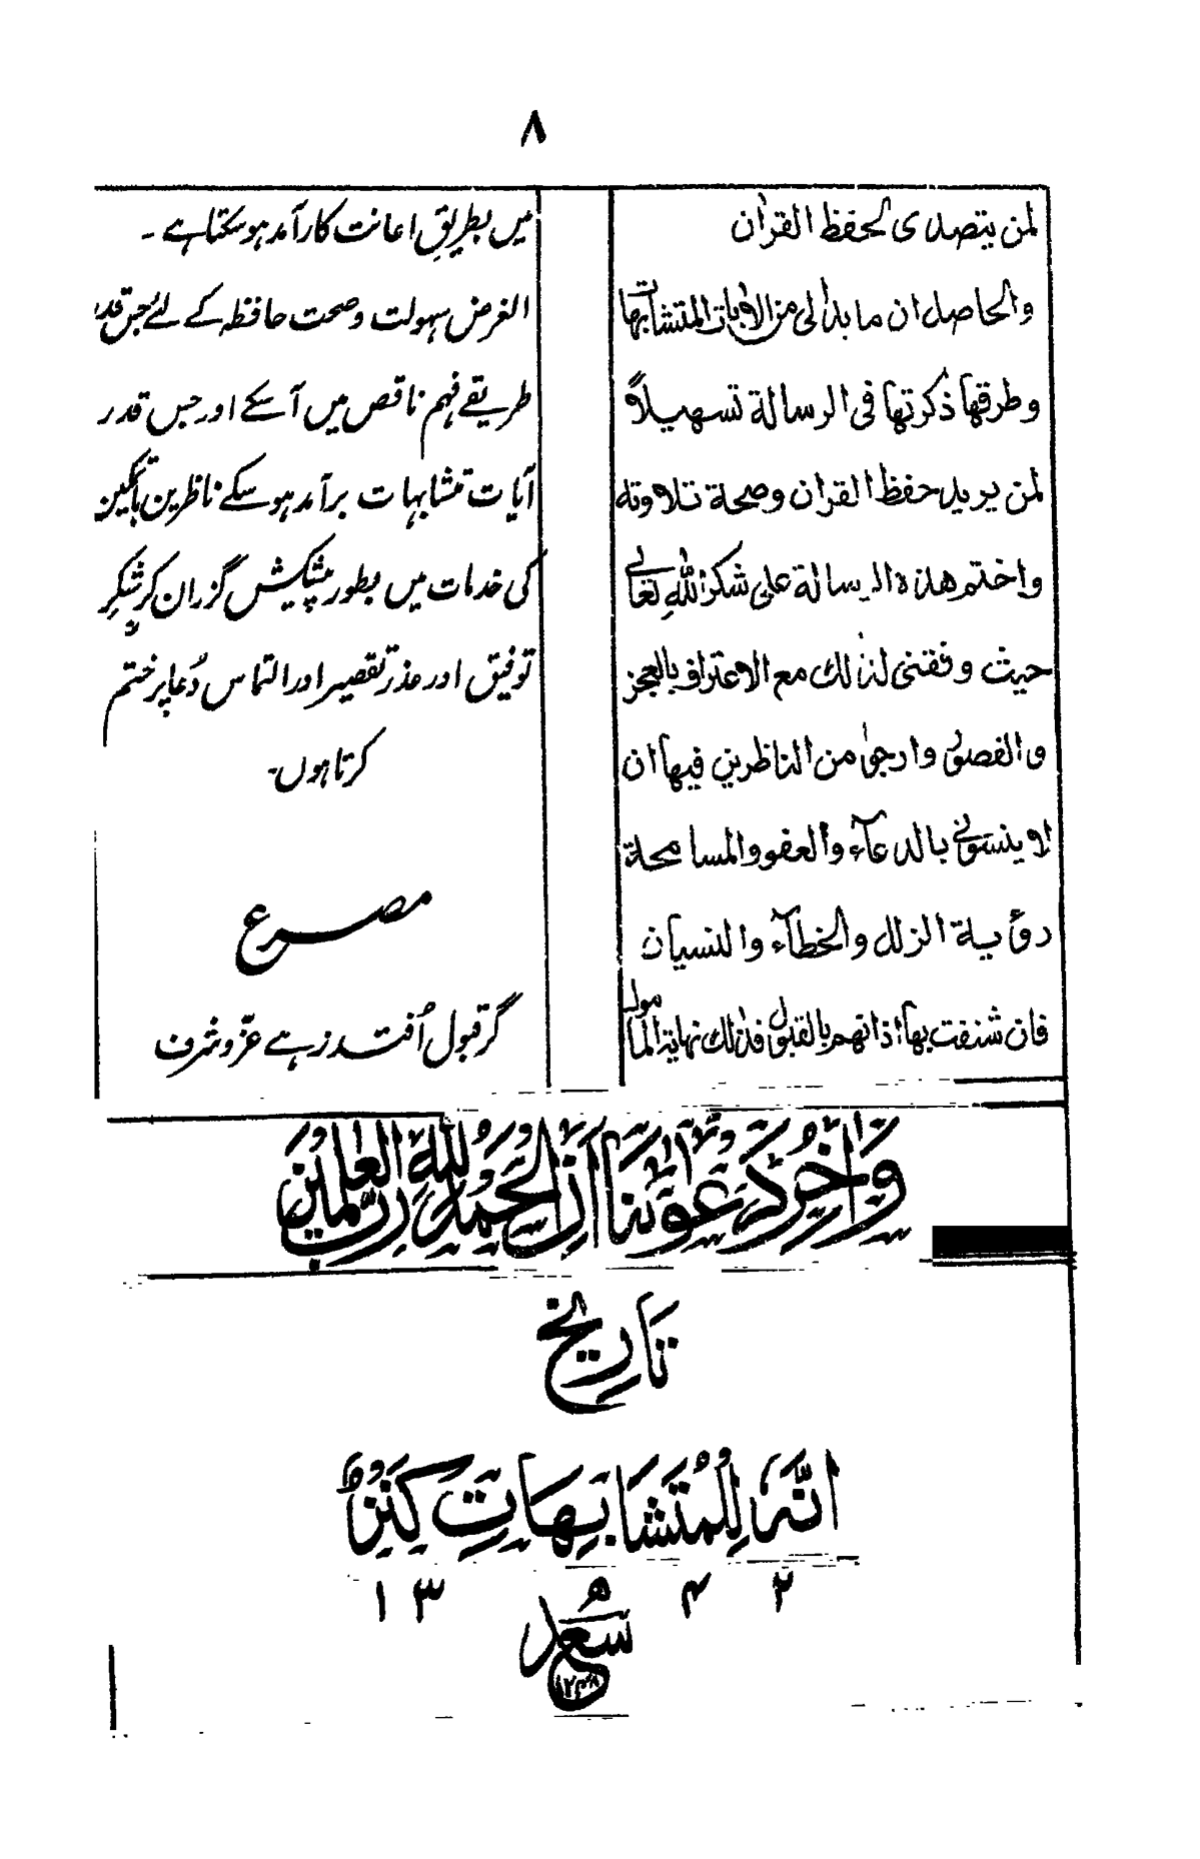 ٨
لمن يتصدى لحفظ القرآن
والحاصل ان ما بدا لى من الآيات المتشابهات
وطرقها ذكرتها فى الرسالة تسهيلاً
لمن يريد حفظ القران وصحة تلاوته
واختم هذه الرسالة على شكر الله تعالى
حيث وفقنى لذلك مع الاعتراف بالعجز
والقصور وارجو من الناظرين فيها ان
لا ينسونى بالدعآء والعفو والمسامحة
رؤية الزلل والخطآء والنسيان
فان شنفت بها اذانهم بالقبول فذلك نهاية المامول
میں بطریقِ اعانت کارآمد ہوسکتا ہے ۔
الغرض سہولت و صحت حافظہ کے لئے جس قدر
طریقے فہم ناقص میں آسکے اور جس قدر
آیات متشابہات برآمد ہوسکے ناظرین باتمکین
کی خدمات میں بطور پیشکش گزران کر شکرِ
توفیق اور عذر تقصیر اور التماس دُعا پر ختم
کرتا ہوں۔
مصرع
گر قبول اُفتد زہے عزّو شرف
وَاٰخِرُ دَعْوٰىنَا اَنِ الْحَمْدُ لِلّٰهِ رَبِّ الْعٰلَمِيْنَ
تاریخ
اِنَّهٗ لِلْمُتَشَابِهَاتِ كَنْزٌ
١٣ ٤٢
سعد